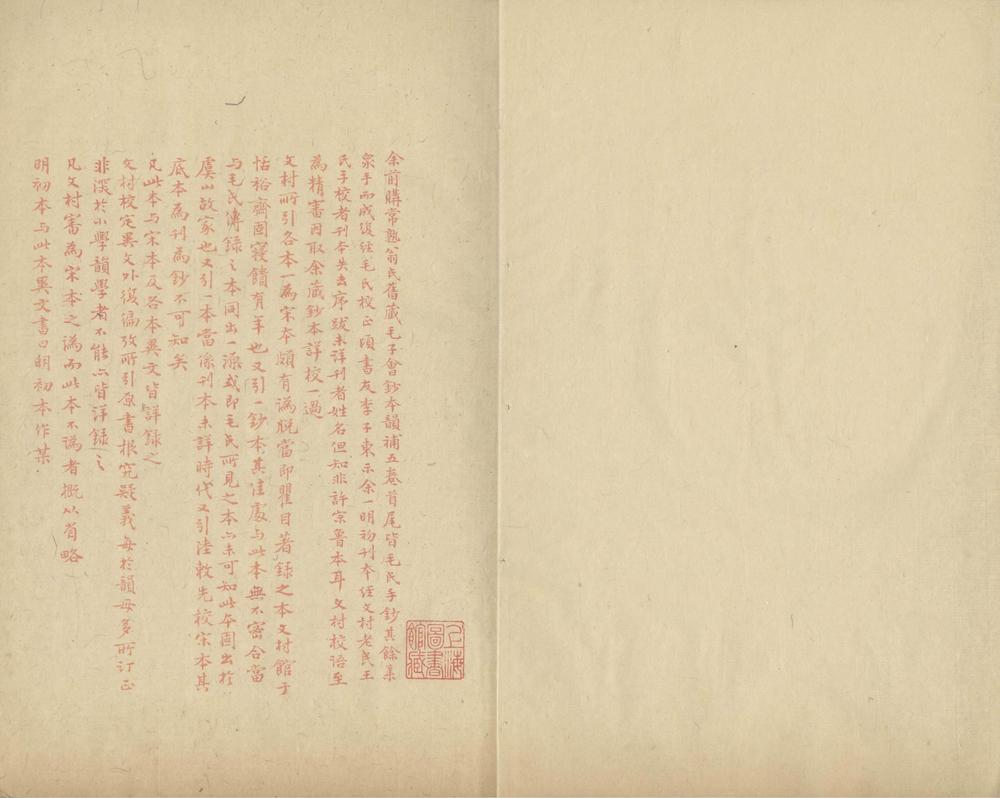 余前購常熟翁氏舊藏毛子會鈔本韻補五卷首尾皆毛氏手鈔其餘集
衆手而成復經毛氏校正頃書友李子東示余一明初刊本經文村老民王
氏手校者刊本失去序跋未詳刊者姓名但知非許宗魯本耳文村校語至
為精審因取余藏鈔本詳校一過
文村所引各本一為宋本頗有譌脫當即瞿目著錄之本文村館于
恬裕齋固寢饋有年也又引一鈔本其佳處与此本無不密合當
与毛氏傳錄之本同出一源或即毛氏所見之本亦未可知此本固出於
虞山故家也又引一本當係刊本未詳時代又引陸敕先校宋本其
底本為刊為鈔不可知矣
凡此本与宋本及各本異文皆詳錄之
文村校定異文外復徧攷所引原書根究疑義每於韻毋多所訂正
非深於小學韻學者不能亦皆詳錄之
凡文村審為宋本之譌而此本不譌者概从省略
明初本与此本異文書曰明初本作某
上海圖書館藏